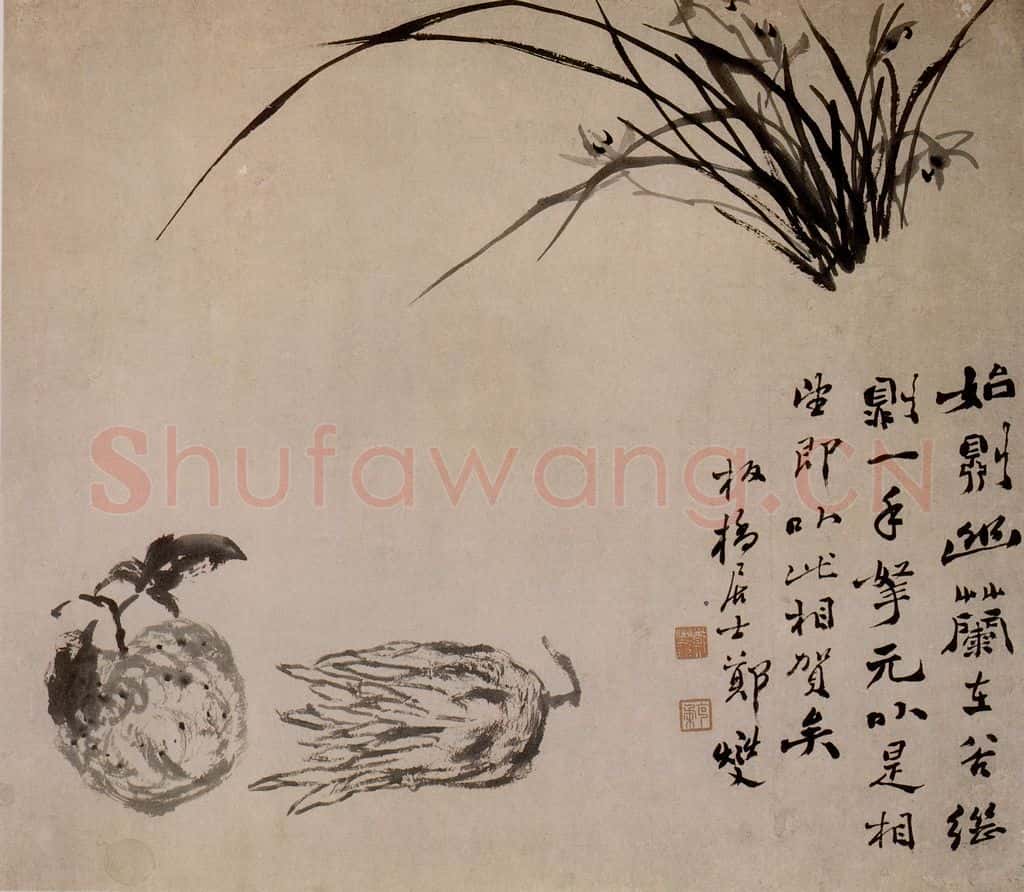 始則幽蘭在谷繼
則一手擎元以是相
望即以此相賀矣
板橋居士鄭燮
Shufawang.CN